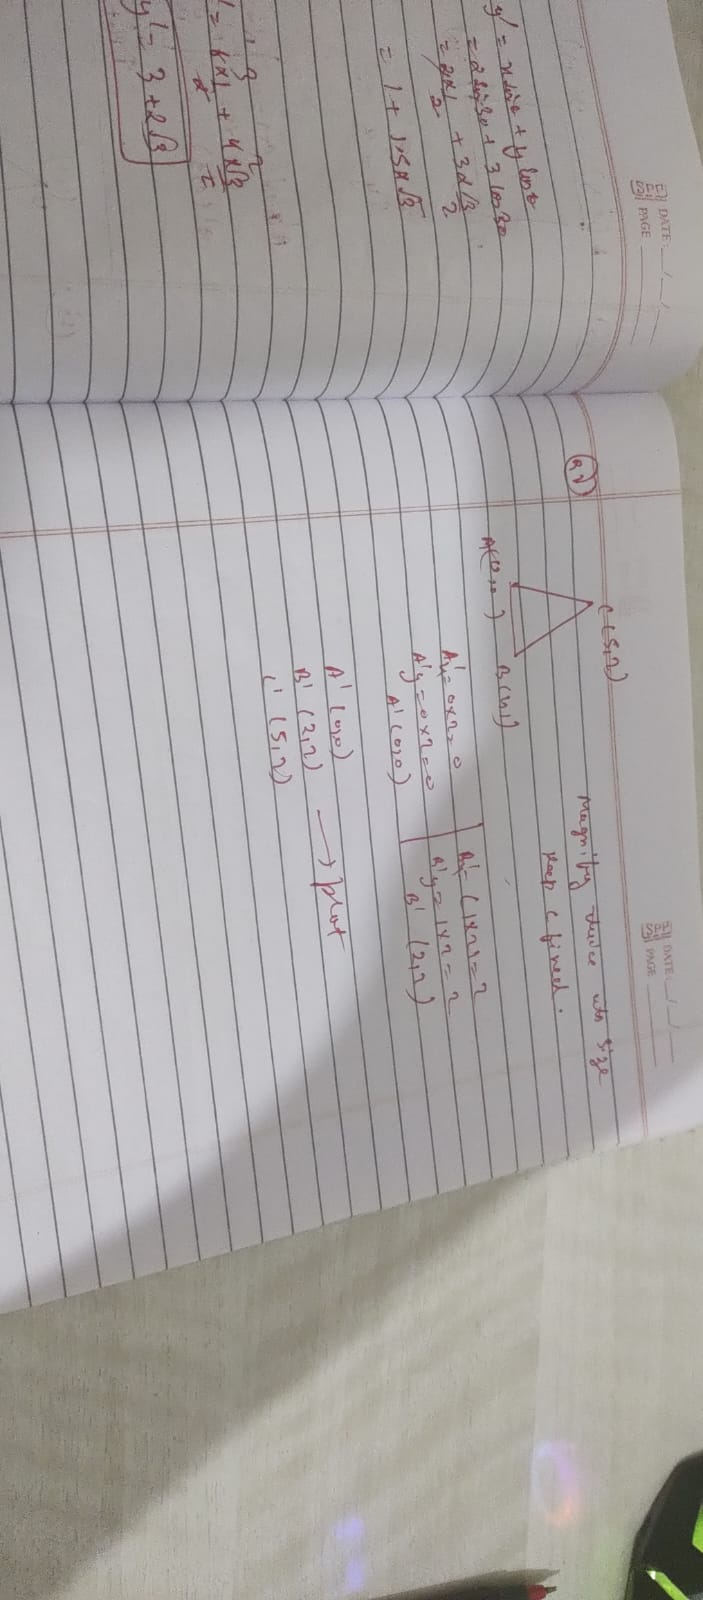 DATE: __/__/__
PAGE
y' = x sinθ + y cosθ
= 2 sin 30 + 3 cos 30
= 2x1/2 + 3x√3/2
= 1 + 1.5x√3
y' = 3 + 2√3
DATE: __/__/__
PAGE
Q2)
C(5,2)
Magnifying twice its size
keep C fixed.
A(0,0)
B(1,1)
A'x = 0x2 = 0
A'y = 0x2 = 0
A' (0,0)
B'x = (1x2) = 2
B'y = 1x2 = 2
B' (2,2)
A' (0,0)
B' (2,2) → plot
C' (5,2)